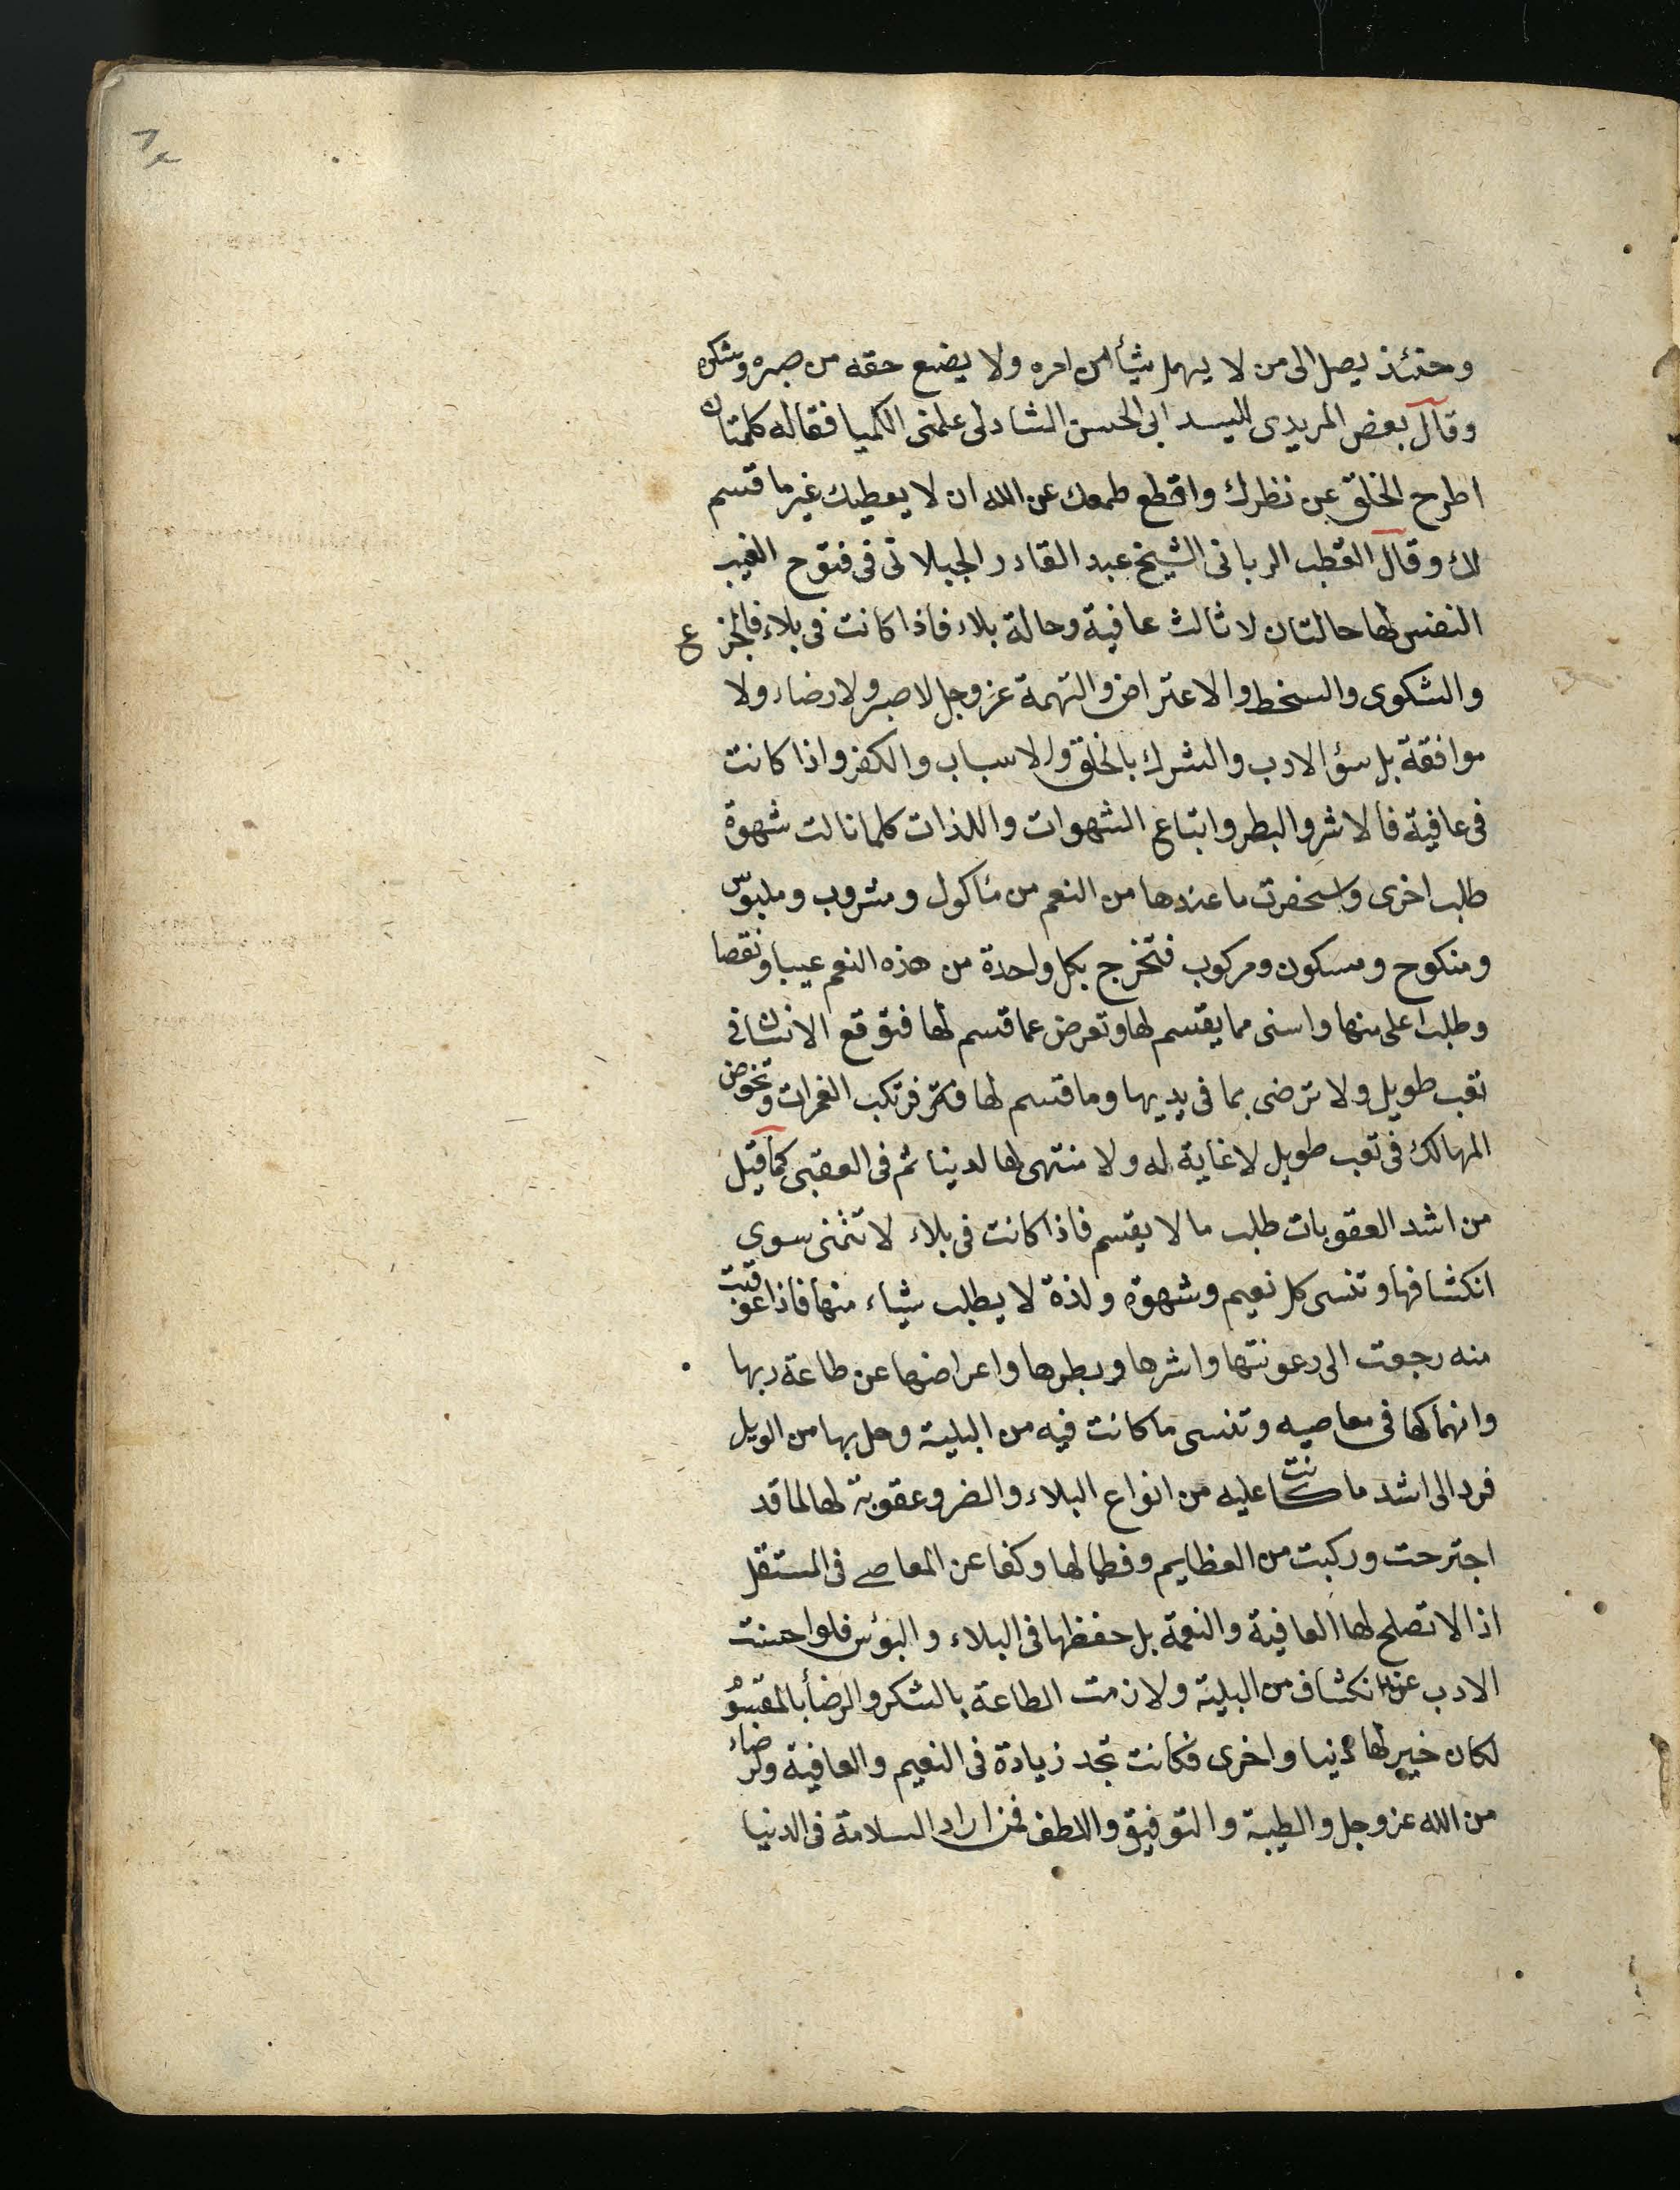 ٦٨
وحنئذ يصل الى من لا يهمل شيأ من امره ولا يضع حقه من صبره وشكره
وقال بعض المريدى للسيد ابى الحسن الشادلى علمنى الكميا فقاله كلمتان
اطرح الخلق عن نظرك واقطع طمعك عن الله ان لا يعطيك غير ما قسم
لك وقال القطب الربانى الشيخ عبد القادر الجيلانى فى فتوح الغيب
النفس لها حالتان لا ثالث عافية وحالة بلاء فاذا كانت فى بلاء فالجزع
والشكوى والسخط والاعتراض والتهمة عز وجل لا صبر ولا رضاء ولا
موافقة بل سؤ الادب والشرك بالخلق والاسباب والكفر واذا كانت
فى عافية فالاشر والبطر وابتاع الشهوات واللذات كلما نالت شهوة
طلب اخرى واسخفرت ما عندها من النعم من مأكول ومشروب وملبوس
ومنكوح ومسكون ومركوب فتخرج بكل واحدة من هذه النعم عيبا ونقصا
وطلب اعلى منها واسنى مما يقسم لها وتعرض عما قسم لها فتوقع الانسان فى
تعب طويل ولا ترضى بما فى يديها وما قسم لها فترتكب الغمرات وتخوض
المهالك فى تعب طويل لا غاية له ولا منتهى لها لدينا ثم فى العقبى كما قيل
من اشد العقوبات طلب ما لا يقسم فاذا كانت فى بلاء لا تتمنى سوى
انكشافها وتنسى كل نعيم وشهوة ولذة لا يطلب شياء منها فاذا عوقبت
منه رجعت الى رعونتها واشرها وبطرها واعراضها عن طاعة ربها
وانهماكها فى معاصيه وتنسى ما كانت فيه من البلية وحل بها من الويل
فرد الى اشد ما كانت عليه من انواع البلاء والضر وعقوبة لها لما قد
اجترحت وركبت من العظايم وفطما لها وكفا عن المعاصے فى المستقل
اذ لا تصلح لها العافية والنعمة بل حفظها فى البلاء والبؤس فلو احسنت
الادب عند انكشاف من البلية ولازمت الطاعة بالشكر والرضأ بالمقسوم
لكان خير لها دنيا واخرى فكانت تجد زيادة فى النعيم والعافية والرضاء
من الله عز وجل والطيبة والتوفيق واللطف فمن اراد السلامة فى الدنيا